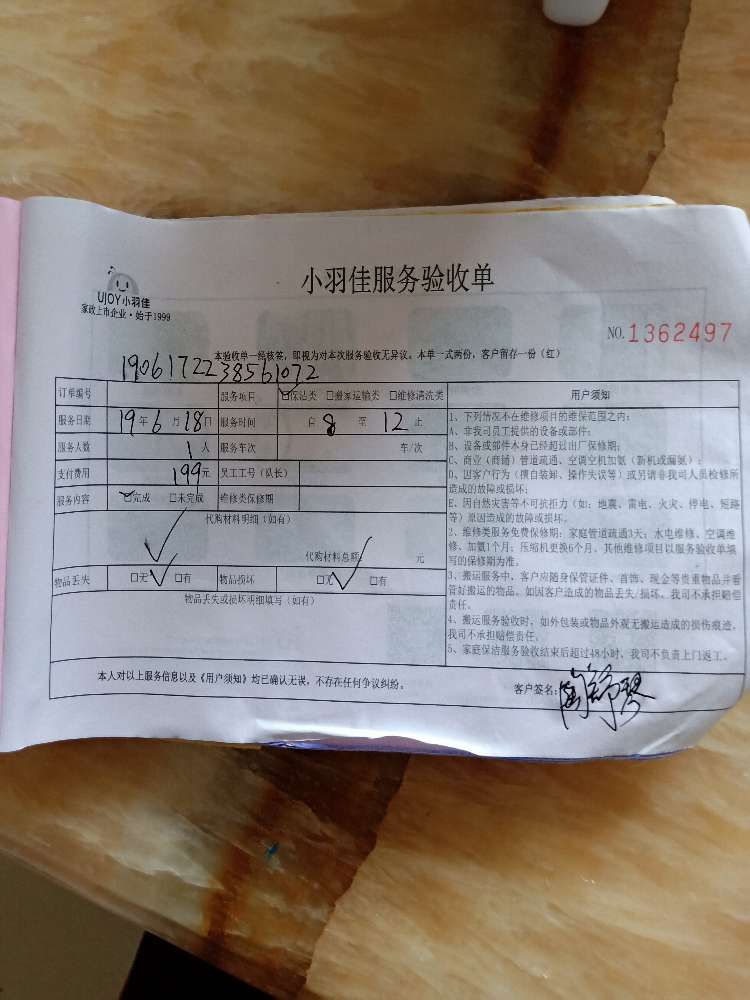 小羽佳服务验收单
UJOY小羽佳
家政上市企业·始于1999
NO. 1362497
本验收单一经核签,即视为对本次服务验收无异议。本单一式两份,客户留存一份(红)
1906172238561072
订单编号 服务项目 ☑保洁类 □搬家运输类 □维修清洗类 用户须知
服务日期 19年6月18日 服务时间 自8至12止
服务人数 1人 服务车次 车/次
支付费用 199元 员工工号(队长)
服务内容 ☑完成 □未完成 维修类保修期
代购材料明细(如有)
代购材料总额 元
物品丢失 □无 □有 物品损坏 □无 □有
物品丢失或损坏明细填写(如有)
1、下列情况不在维修项目的维保范围之内:
A、非我司员工提供的设备或部件;
B、设备或部件本身已经超过出厂保修期;
C、商业(商铺)管道疏通、空调空机加氨(新机或漏氨);
D、因客户行为(擅自装卸、操作失误等)或另请非我司人员检修所
造成的故障或损坏;
E、因自然灾害等不可抗拒力(如:地震、雷电、火灾、停电、短路
等)原因造成的故障或损坏。
2、维修类服务免费保修期:家庭管道疏通3天;水电维修、空调维
修、加氨1个月;压缩机更换6个月。其他维修项目以服务验收单填
写的保修期为准。
3、搬运服务中,客户应随身保管证件、首饰、现金等贵重物品并看
管好搬运的物品。如因客户造成的物品丢失/损坏,我司不承担赔偿
责任。
4、搬运服务验收时,如外包装或物品外观无搬运造成的损伤痕迹,
我司不承担赔偿责任。
5、家庭保洁服务验收结束后超过48小时,我司不负责上门返工。
本人对以上服务信息以及《用户须知》均已确认无误,不存在任何争议纠纷。 客户签名: